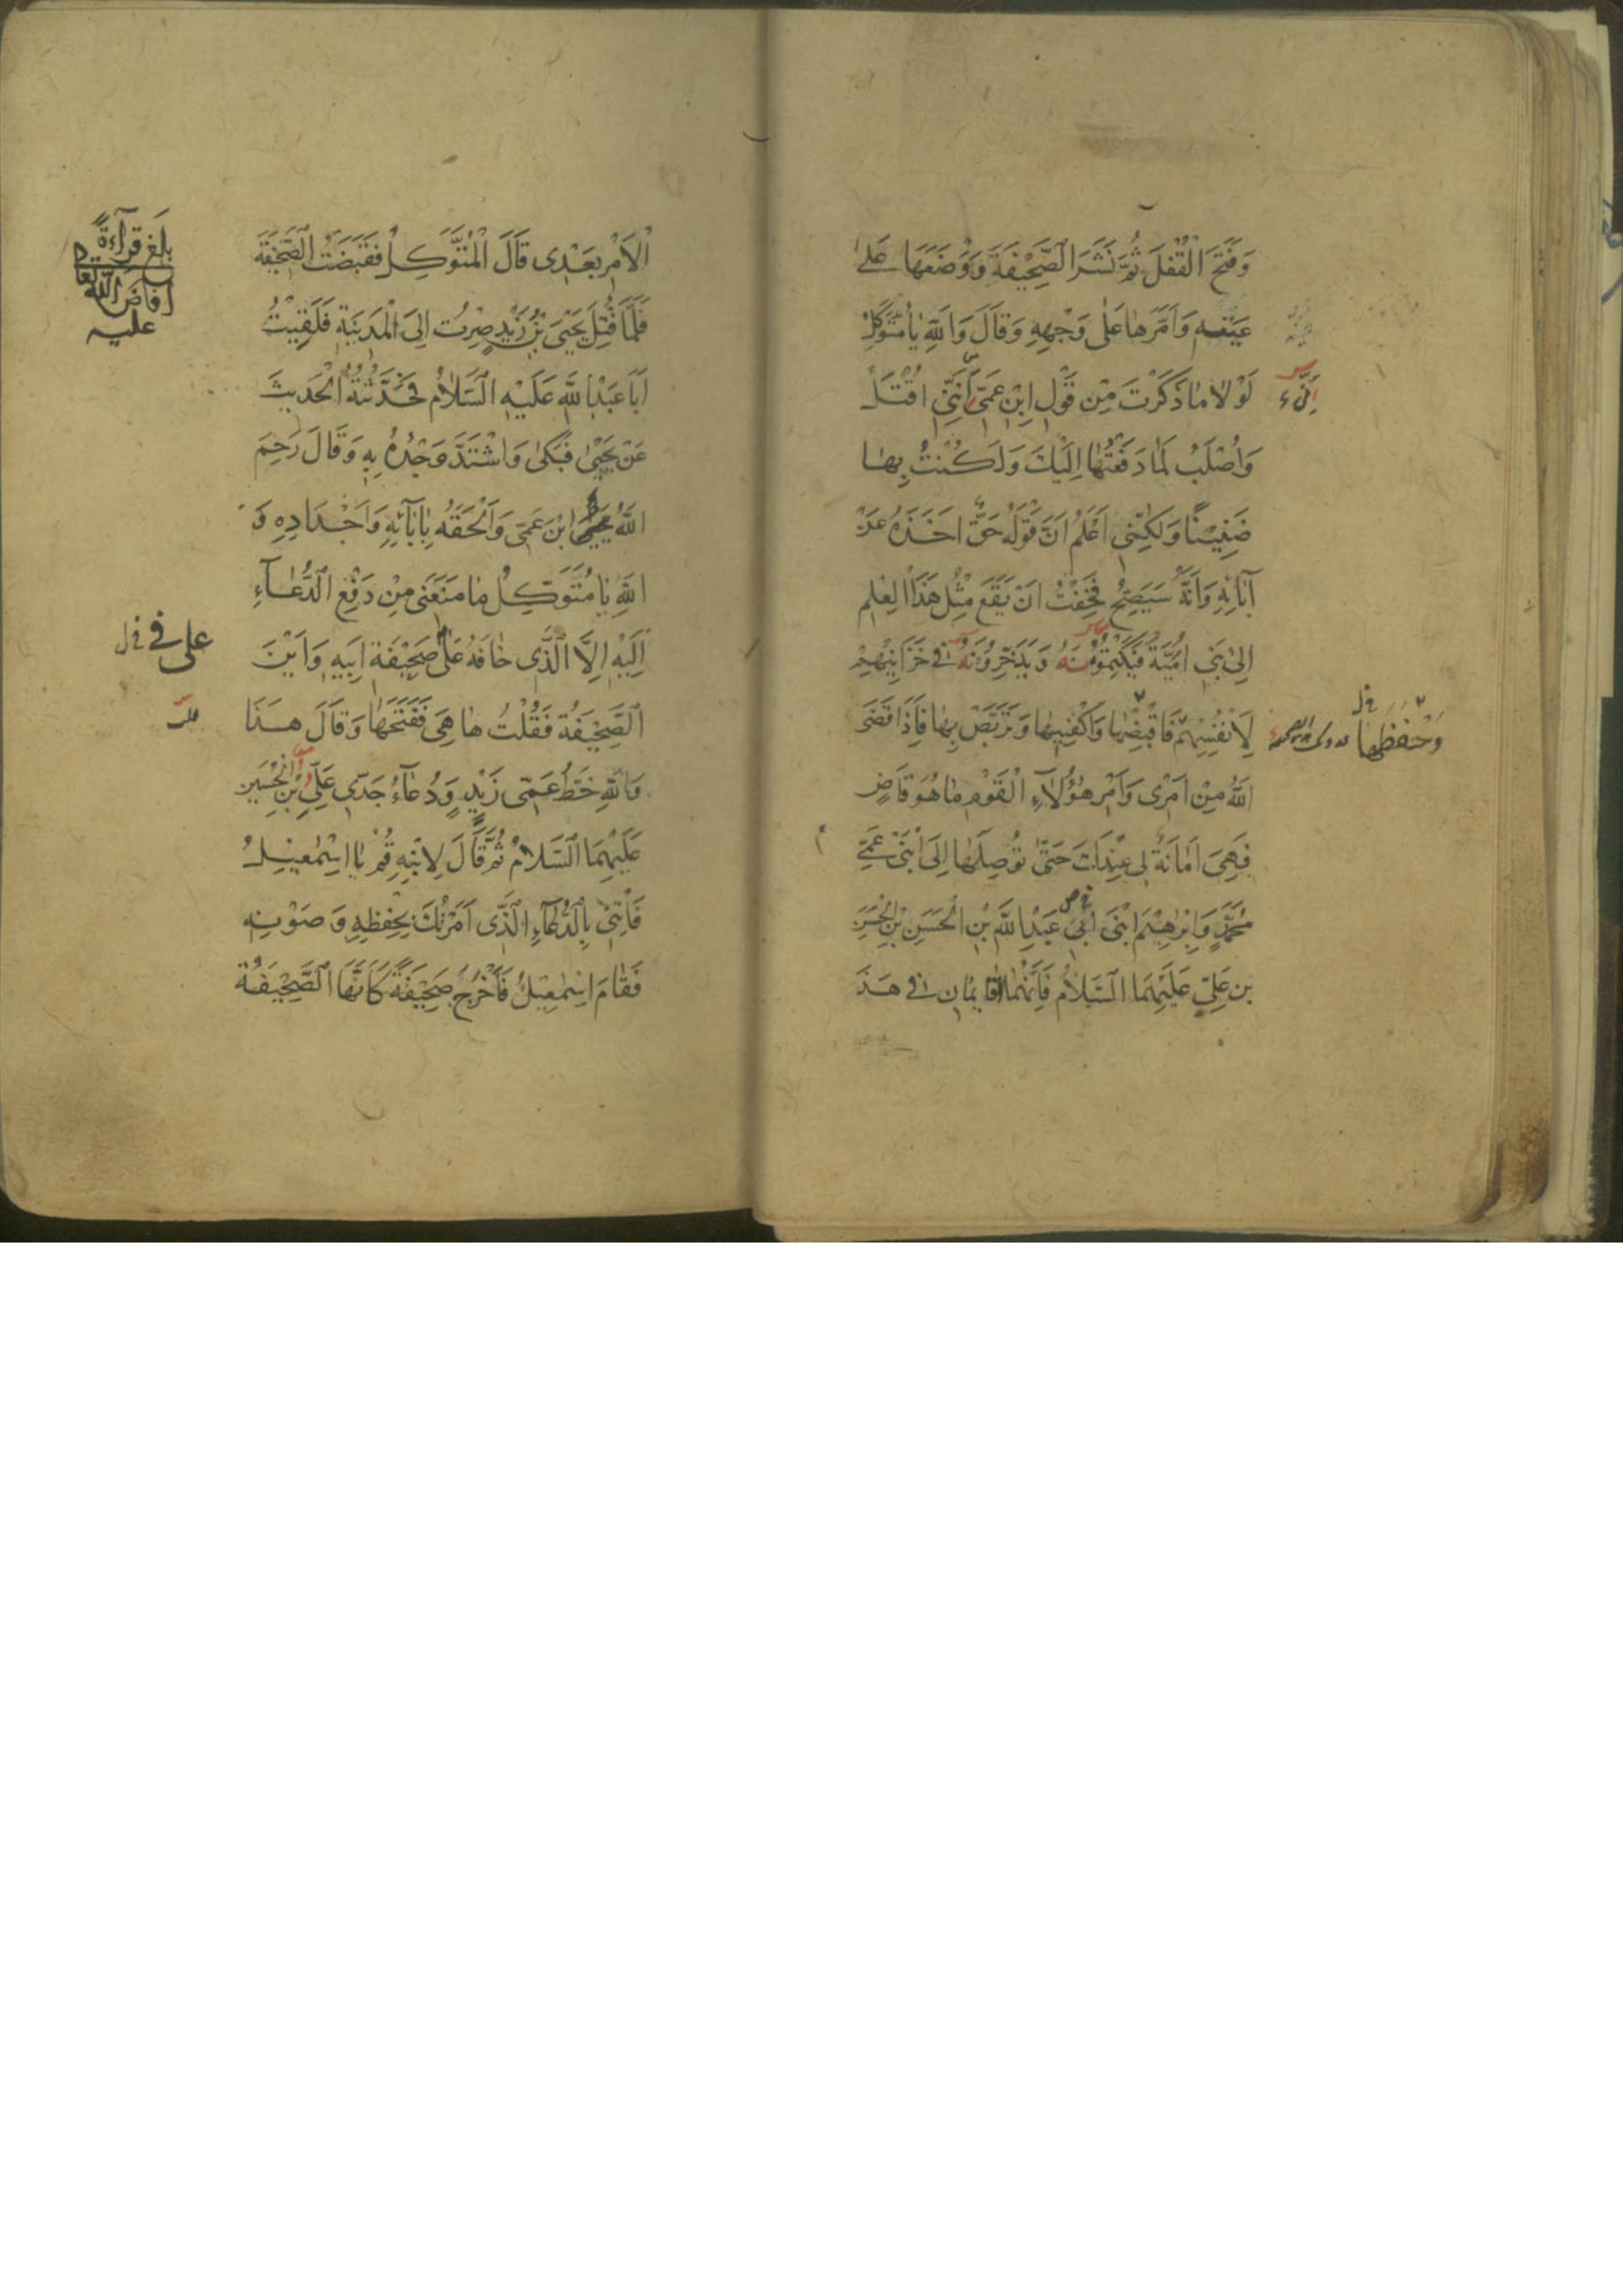 وَفَتَحَ الْقُفْلَ ثُمَّ نَشَرَ الصَّحِيْفَةَ وَوَضَعَهَا عَلٰى
عَيْنِهِ وَاَمَرَّهَا عَلٰى وَجْهِهِ وَقَالَ وَاللّٰهِ يَا مُتَوَكِّلُ
لَوْلَا مَا ذَكَرْتَ مِنْ قَوْلِ ابْنِ عَمِّي اَنَّنِي اُقْتَلُ
وَاُصْلَبُ لَمَا دَفَعْتُهَا اِلَيْكَ وَلَكُنْتُ بِهَا
ضَنِيْنًا وَلٰكِنِّي اَعْلَمُ اَنَّ قَوْلَهُ حَقٌّ اَخَذَهُ عَنْ
آبَائِهِ وَاَنَّهُ سَيَصِحُّ فَخِفْتُ اَنْ يَقَعَ مِثْلُ هَذَا الْعِلْمِ
اِلٰى بَنِي اُمَيَّةَ فَيَكْتُمُوْنَهُ وَيَدَّخِرُوْنَهُ فِي خَزَائِنِهِمْ
لِاَنْفُسِهِمْ فَاقْبِضْهَا وَاكْفِنِيهَا وَتَرَبَّصْ بِهَا فَاِذَا قَضَى
اللّٰهُ مِنْ اَمْرِي وَاَمْرِ هٰؤُلَآءِ الْقَوْمِ مَا هُوَ قَاضٍ
فَهِيَ اَمَانَةٌ لِي عِنْدَكَ حَتّٰى تُوصِلَهَا اِلَى ابْنَيْ عَمِّي
مُحَمَّدٍ وَاِبْرٰهِيْمَ ابْنَيْ عَبْدِ اللّٰهِ بْنِ الْحَسَنِ بْنِ الْحَسَنِ
بْنِ عَلِيٍّ عَلَيْهِمَا السَّلَامُ فَاِنَّهُمَا الْقَائِمَانِ فِي هَذَا
اِنِّي
وَاحْفَظْهَا
الْاَمْرِ بَعْدِي قَالَ الْمُتَوَكِّلُ فَقَبَضْتُ الصَّحِيْفَةَ
فَلَمَّا قُتِلَ يَحْيَى بْنُ زَيْدٍ صِرْتُ اِلَى الْمَدِينَةِ فَلَقِيْتُ
اَبَا عَبْدِ اللّٰهِ عَلَيْهِ السَّلَامُ فَحَدَّثْتُهُ الْحَدِيثَ
عَنْ يَحْيٰى فَبَكٰى وَاشْتَدَّ وَجْدُهُ بِهِ وَقَالَ رَحِمَ
اللّٰهُ ابْنَ عَمِّي وَاَلْحَقَهُ بِآبَآئِهِ وَاَجْدَادِهِ وَ
اللّٰهِ يَا مُتَوَكِّلُ مَا مَنَعَنِي مِنْ دَفْعِ الدُّعَآءِ
اِلَيْهِ اِلَّا الَّذِي خَافَهُ عَلٰى صَحِيْفَةِ اَبِيهِ وَاَيْنَ
الصَّحِيْفَةُ فَقُلْتُ هَا هِيَ فَفَتَحَهَا وَقَالَ هٰذَا
وَاللّٰهِ خَطُّ عَمِّي زَيْدٍ وَدُعَآءُ جَدِّي عَلِيِّ بْنِ الْحُسَيْنِ
عَلَيْهِمَا السَّلَامُ ثُمَّ قَالَ لِابْنِهِ قُمْ يَا اِسْمٰعِيْلُ
فَاْتِنِي بِالدُّعَآءِ الَّذِي اَمَرْتُكَ بِحِفْظِهِ وَصَوْنِهِ
فَقَامَ اِسْمٰعِيْلُ فَاَخْرَجَ صَحِيْفَةً كَاَنَّهَا الصَّحِيْفَةُ
بلغ قراءةً
افاض الله تعالى
عليه
على في